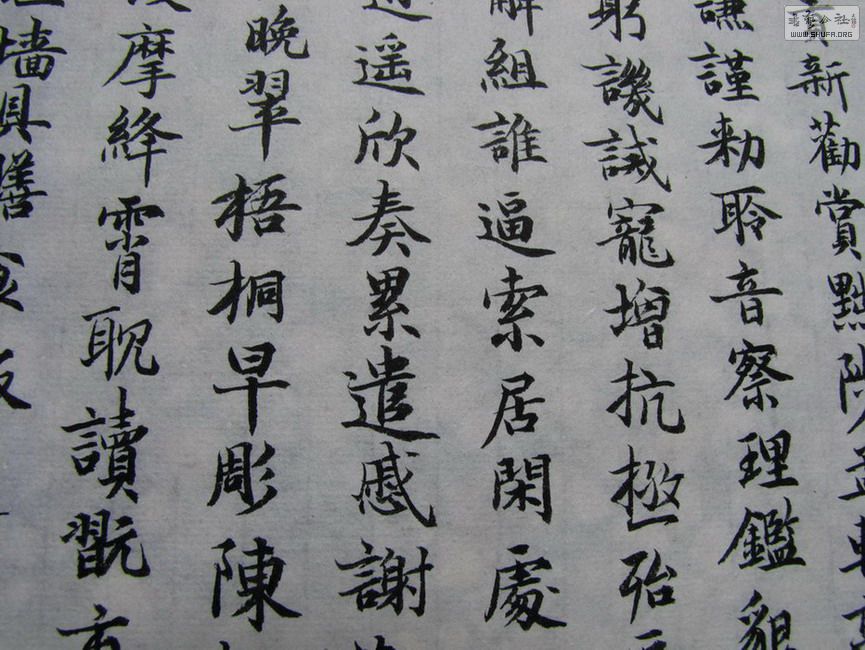 貢新勸賞黜陟孟軻
謙謹勅聆音察理鑑貌
躬譏誡寵增抗極殆
解組誰逼索居閑處
遥欣奏累遣慼謝
晚翠梧桐早彫陳
摩絳霄耽讀翫市
墙具膳
WWW.SHUFA.ORG